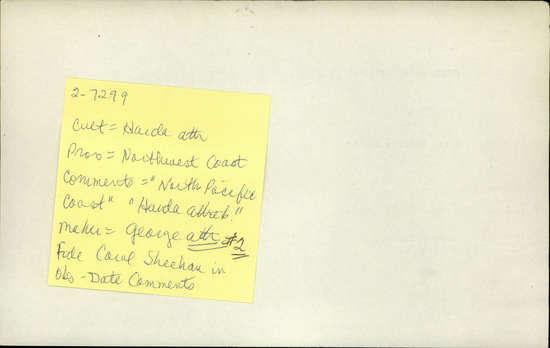 2-7299
Cult = Haida attr
Prov = Northwest Coast
Comments = "North Pacific
Coast" "Haida attrib."
Maker = George attr #2
Fide Carol Sheehan in
Obs - Date Comments